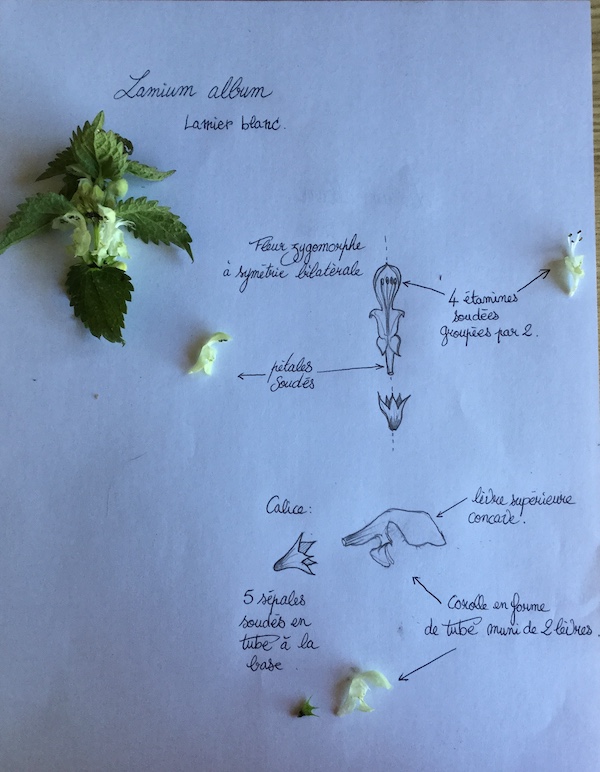 Lamium album
Lamier blanc.
Fleur zygomorphe
à symétrie bilatérale
4 étamines
soudées
groupées par 2.
pétales
soudés
Calice:
lèvre supérieure
concave.
5 sépales
soudés en
tube à la
base.
Corolle en forme
de tube muni de 2 lèvres.